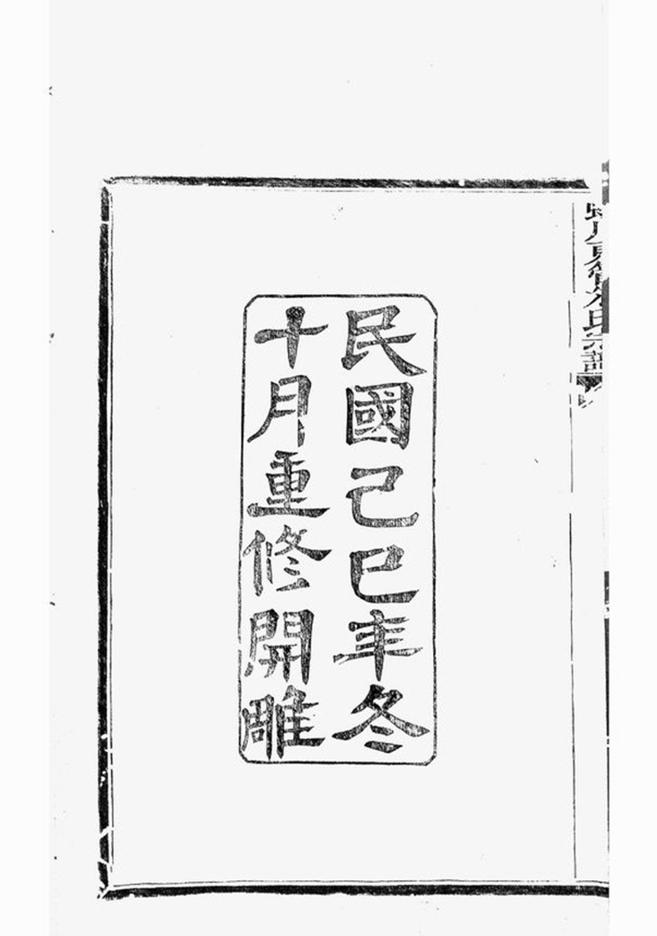 民國己巳年冬
十月重修開雕
氏宗譜